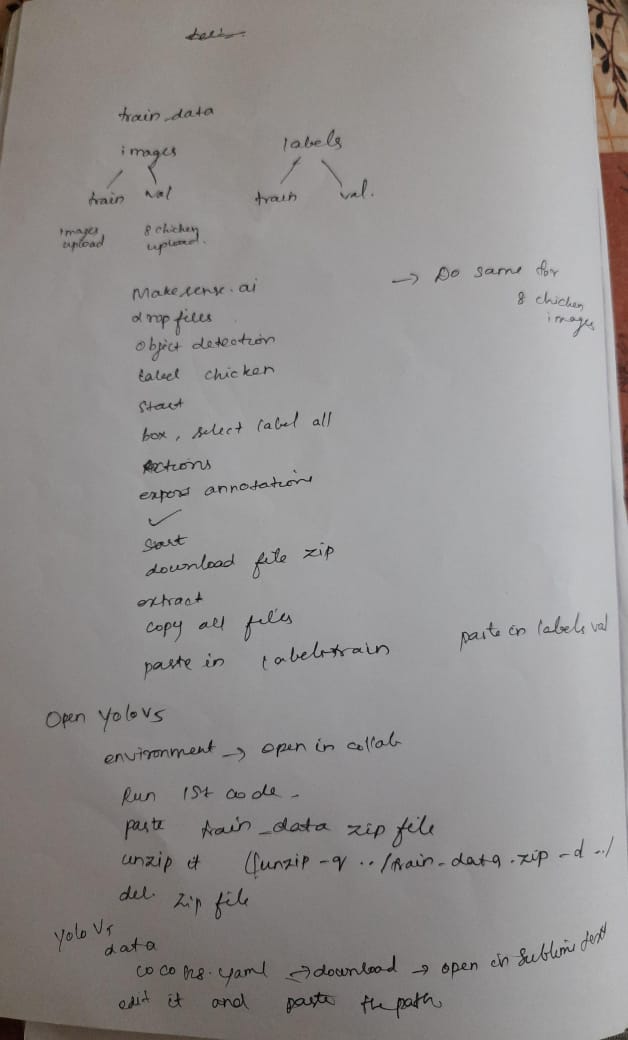 train_data
images labels
train val train val.
images upload 8 chicken upload.
Makesense.ai → Do same for 8 chicken images
drop files
object detection
label chicken
start
box, select label all
Actions
export annotations
✓
start
download file zip
extract
copy all files
paste in labels train paste in labels val
Open YoloV5
environment → open in collab
Run 1st code -
paste train_data zip file
unzip it (!unzip -q ../train_data.zip -d ../
del. zip file
Yolo V5
data
coco .yaml → download → open in Sublime text
edit it and paste the path